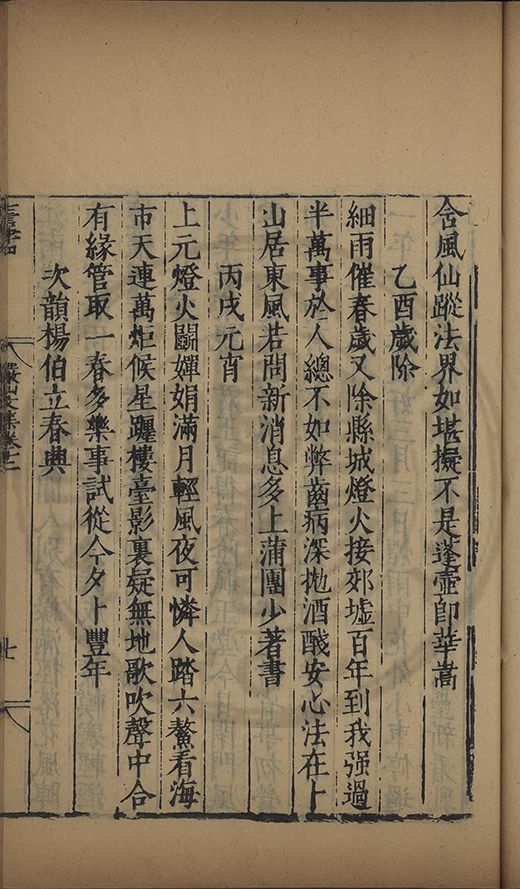 含風仙蹤法界如堪擬不是蓬壺卽華嵩
乙酉歲除
細雨催春歲又除縣城燈火接郊墟百年到我强過
半萬事於人總不如弊齒病深拋酒醆安心法在卜
山居東風若問新消息多上蒲團少著書
丙戌元宵
上元燈火鬭嬋娟滿月輕風夜可憐人踏六鰲看海
市天連萬炬候星躔樓臺影裏疑無地歌吹聲中合
有緣管取一春多樂事試從今夕卜豐年
次韻楊伯立春興